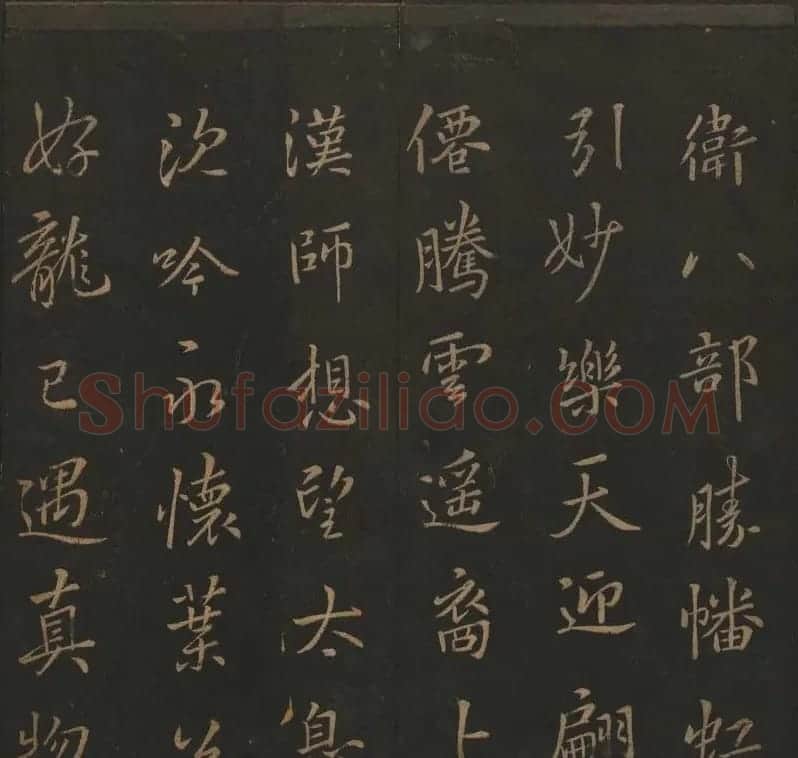 衛八部勝幡虹
引妙樂天迎翩
僊騰雲遥裔上
漢師想望太息
沈吟永懷葉公
好龍已遇真物
Shufaziliao.COM